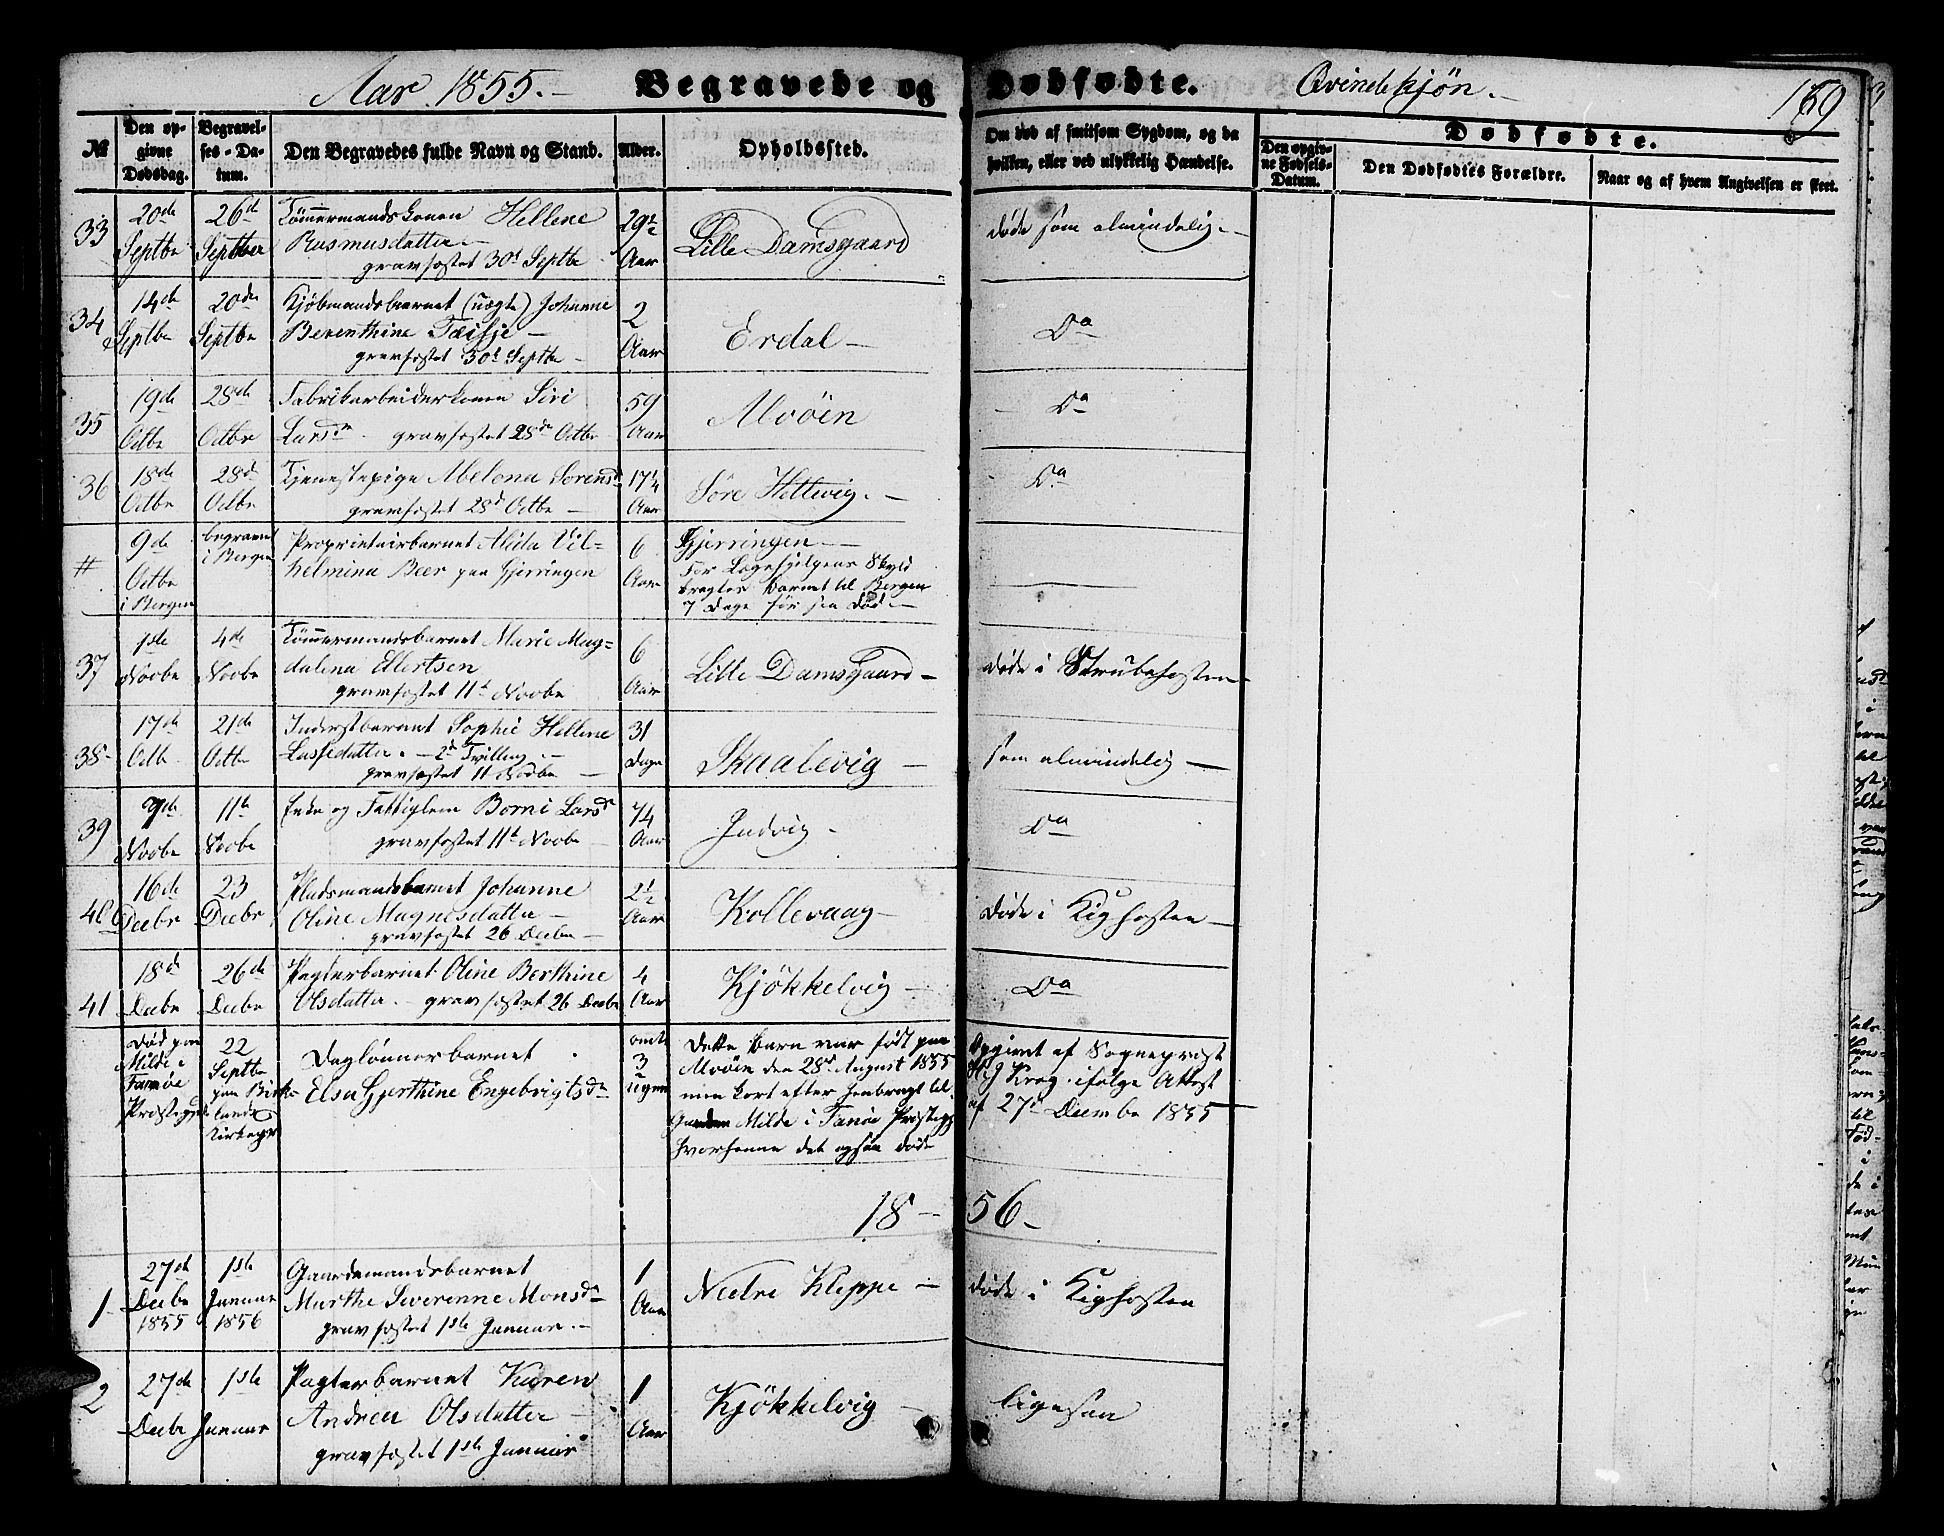 Aar 1855.— Begravede og Dødfødte. Qvindekjøn.—
169
№ Den opgivne Dødsdag. Begravelses-Datum. Den Begravedes fulde Navn og Stand. Alder. Opholdssted. Om død af smitsom Sygdom, og da hvilken, eller ved ulykkelig Hændelse.
Dødfødte.
Den opgivne Fødsels-Datum. Den Dødfødtes Forældre. Naar og af hvem Angivelsen er skeet.
33 20de Septbr 26d Septber Tømmermandskonen Hellene
Rasmusdatter—
gravfæstet 30d Septbr
29½ Aar Lille Damsgaard døde som almindelig.—
34 14de Septbr 20de Septbr Kjøbmandsbarnet (uægte) Johanne
Berenthine
gravfæstet 30t Septbr—
2 Aar Erdal— Do
35 19de Octbr 28de Octbr Fabrikarbeiderkonen Siri
Larsdr. gravfæstet 28de Octbr
59 Aar Alvøen Do
36 18de Octbr 28d Octbr Tjenestepige Abelona Sørensdr
gravfæstet 28d Octbr—
17¼ Aar Søre Hettevig.— Do
# 9de Octbr i Bergen begravet i Bergen Proprietairbarnet Alida Vil=
helmina Beer paa Gjerringen
6 Aar Gjerringen—
For Lægehjelpens Skyld
bragtes barnet til Bergen
7 Dage før sin Død—
37 1ste Novbr 4de Novbr Tømmermandsbarnet Marie Mag=
dalena Ellertsen
gravfæstet 11t Novbr
6 Aar Lille Damsgaard— døde i Strubehosten—
38 17de Octb. 21de Octbr Inderstbarnet Sophie Hellene
Lassedatter.— 2d Tvilling.—
gravfæstet 11 Novbr—
31 Dage Skaalevig— som almindelig—
39 9de Novbr 11te Novbr Enke og Fattiglem Borni Larsdr
gravfæstet 11te Novbr
74 Aar Indvig— Do
40 16de Decbr 23 Decbr Pladsmandsbarnet Johanne
Oline Magnesdatter—
gravfæstet 26 Decbr—
2½ Aar Kollevaag— døde i Kighosten—
41 18d Decbr 26de Decbr Pagterbarnet Oline Berthine
Olsdatter.— gravfæstet 26 Decbr
4 Aar Kjøkkelvig— Do
Død paa Milde i Fanøe Præstegjd 22 Septbr paa Birkelands Kirkegr Daglønnerbarnet
Elsa Gjerthine Engebrigtsdr
omtr 3 ugen
Dette barn var født paa
Alvøen den 28d August 1855
men kort efter henbragt til
Gaarden Milde i Fanøe Præstegj
hvorhenne det ogsaa døde
Opgivet af Sogneprest
Krog ifølge Attest
af 27d Decembr 1855—
18— 56—
1 27de Decbr 1855 1ste Januar 1856 Gaardsmandsbarnet
Marthe Severenne Monsdr
gravfæstet 1ste Januar.—
1 Aar Nedre Kleppe— døde i Kighosten
2 27de Decbr 1ste Januar Pagterbarnet Karen
Andrea Olsdatter—
gravfæstet 1ste Januar
1 Aar Kjøkkelvig— ligesaa